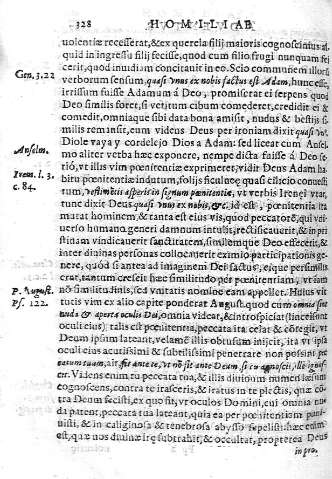 328 HOMILIAE
uolentiæ recesserat, & ex querela filij maioris cognoscimus al
quid in ingressu filij fecisse, quod cum filio frugi nunquam fe
cerit, quod inuidiam concitauit in eo. Scio communem illorũ
Gen. 3. 22 verborum sensum, quasi vnus ex nobis factus est Adam, hunc esse,
irrisum fuisse Adamum à Deo, promiserat ei serpens quod
Deo similis foret, si vetitum cibum comederet, credidit ei &
comedit, omniaque sibi data bona amisit, nudus & bestijs si
milis remansit, eum videns Deus per ironiam dixit quasi vn
Diole vaya y cordelejo Dios a Adam: sed liceat cum Ansel
Anselm. mo aliter verba hæc exponere, nempe dicta fuisse à Deo se
riò, vt illis vim pœnitentiæ exprimeret, vidit Deus Adam ha
Irem. l. 3. bitu pœnitentiæ indutum, folijs ficulneę quasi cilicio conuesti
c. 84. tum, vestimentis asperis in signum pœnitentiæ, vt verbis Irenei vtar,
tunc dixit Deus quasi vnus ex nobis, &c. id est, pœnitentia ita
mutat hominem, & tanta est eius vis, quod peccatorẽ, qui vni-
uerso humano generi damnum intulit, rectificauerit, & in pri
stinam vindicauerit sanctitatem, similemque Deo effecerit, &
inter diuinas personas collocauerit eximio participationis ge-
nere, quòd si antea ad imaginem Dei factus, eique persimilis
erat, tantum crescit hæc similitudo per pœnitentiam, vt iam
P. August. nõ similitudinis, sed vnitatis nomine eam appellet. Huius vir
Ps. 122. tutis vim ex alio capite ponderat August. quòd cum omnia sint
nuda & aperta oculis Dei, omnia videat, & introspiciat (lincei sunt
oculi eius) talis est pœnitentia, peccata ita celat & cõtegit, vt
Deum ipsum lateant, velamẽ illis obtusum inijcit, ita vt ipsi
oculi eius acutissimi & subtilissimi penetrare non possint
cer. Videns enim eu peccata tua, & illis diuinum numen læsum
cognoscens, contra te irasceris, & iratus in te plectis, quæ cõ-
tra Deum fecisti, ex quo fit, vt oculos Domini, cui omnia nu-
da patent, peccata tua lateant, quia ea per pœnitentiam puni-
uisti, & in caliginosa & tenebrosa abysso sepelisti: hæc enim
est, quæ nos diuinæ iræ subtrahit, & occultat, propterea Deus
in pro.